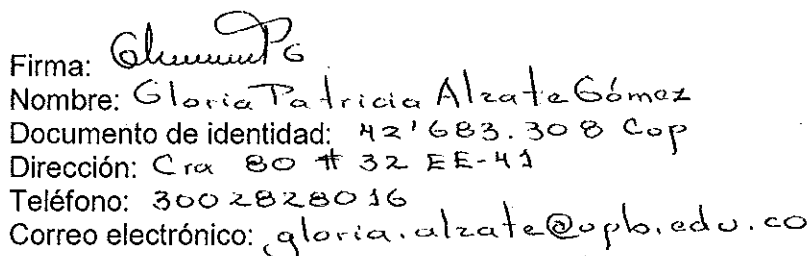 Firma:
Nombre: Gloria Patricia Alzate Gómez
Documento de identidad: 42'683.308 Cop
Dirección: Cra 80 # 32 EE-41
Teléfono: 3002828016
Correo electrónico: gloria.alzate@upb.edu.co